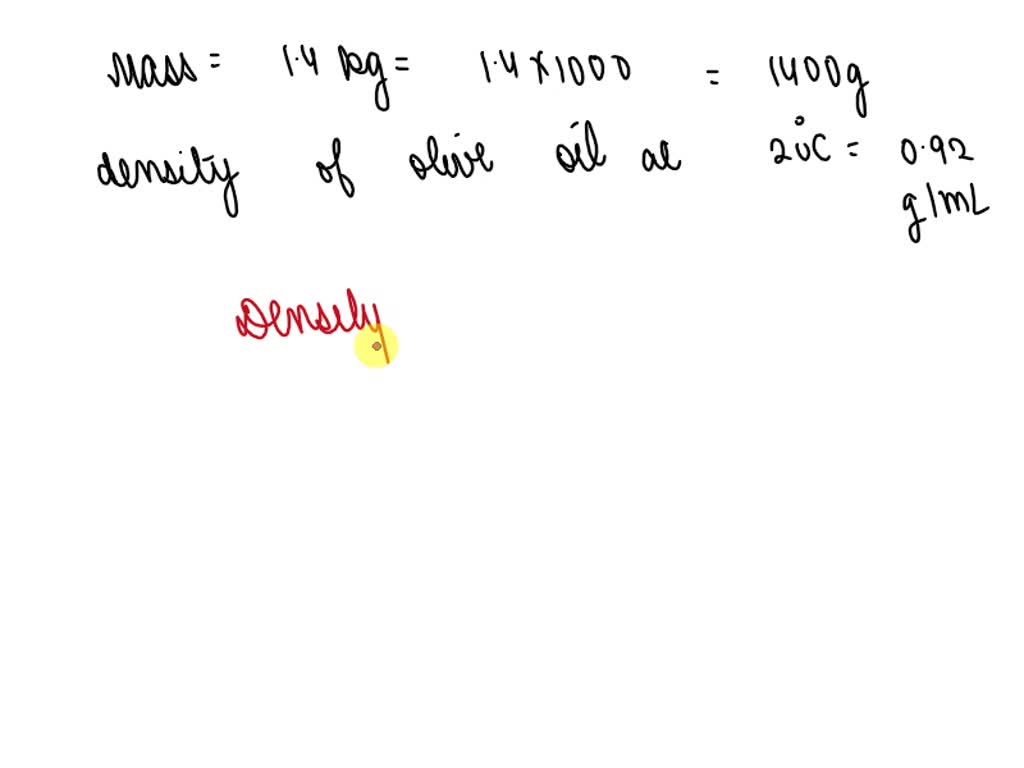 Mass = 1.4 kg = 1.4 × 1000 = 1400g
density of olive oil at 20°C = 0.92
g/mL
Density